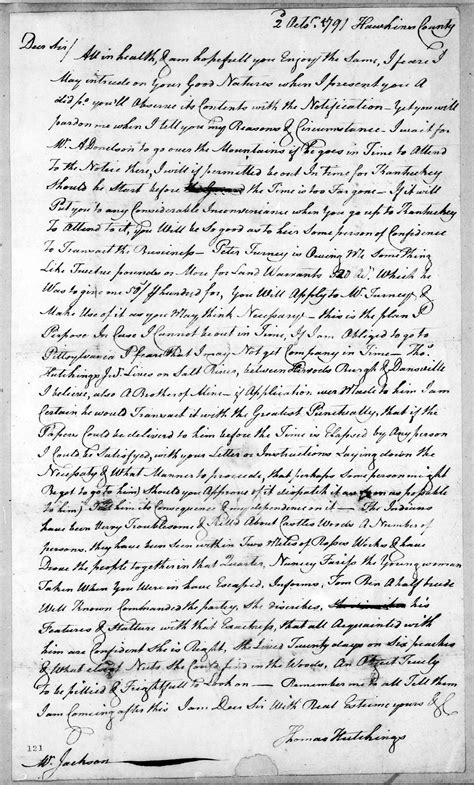 2 Octor. 1791 Hawkins County
Dear Sir/
All in health, & am hopefull you Enjoy the Same, I feare I
May intrude on Your Good Natures when I present you A
did pr. you'll Observe its Contents with the Notification – Yet you will
pardon me when I tell you my Reasons & Circumstance – I wait for
Mr. A Donelson to go over the Mountains if he goes in Time to Attend
To the Notice there, I will if permitted be out In time for Kentuckey
Should he Start before the Time is too Far gone – if it will
Put you to any Considerable Inconvenience when You go up to Kentuckey
To Attend to it, you Will be So good as to heir Some person of Confidence
To Transact the Business – Peter Turney is Owing Me Something
Like Twelve pounds or More for Land Warrants Which he
Was to give me for, You Will Apply to Mr. Turney &
Make Use of it as You May think Necessary – this is the plan I
Perpose In Case I Cannot be out in Time, If I am Obliged to go to
Pittsylvania I feare That I may Not get Company in Time – Thos.
Hutchings Lives on Salt River, between Woods Burgh & Dansville
I beleive, also A Brother of Mine – if Application were Made to him I am
Certain he would Transact it with the Greatest Punctually, that if the
Papers Could be delivered to him before the Time is Elapsed by Any person
I Could be Satisfyed, with your Letter or Instructions Laying down the
Necessaty & What Manner to proceede, that perhaps Some person might
Be got to go to him) Should you Approve of it dispatch it as soon as possable
to him) Tell him its Consequence & my dependence on it – The Indians
have been Very Troublesome & Kill'd About Castles Woods A Number of
persons, they have been Seen within Two Miles of Rosses Works & have
Drove the people together in that Quarter, Nancey Fariss the Young woman
Taken When You were in have Escaped. Informs, Tom Ben A half breede
Well Known Commanded the party, She discribes his
Features & Stature with that Exactness, that all Acquainted with
him are Confident She is Right, She Lived Twenty days on Six peaches
& What Nuts She Could find in the Woods, An Object Truely
To be pittied & Frightfull to Look on – Remember me to all Tell them
I am Comeing after this I am Dear Sir With Real Esteeme yours &c
Thomas Hutchings
121
Mr. Jackson